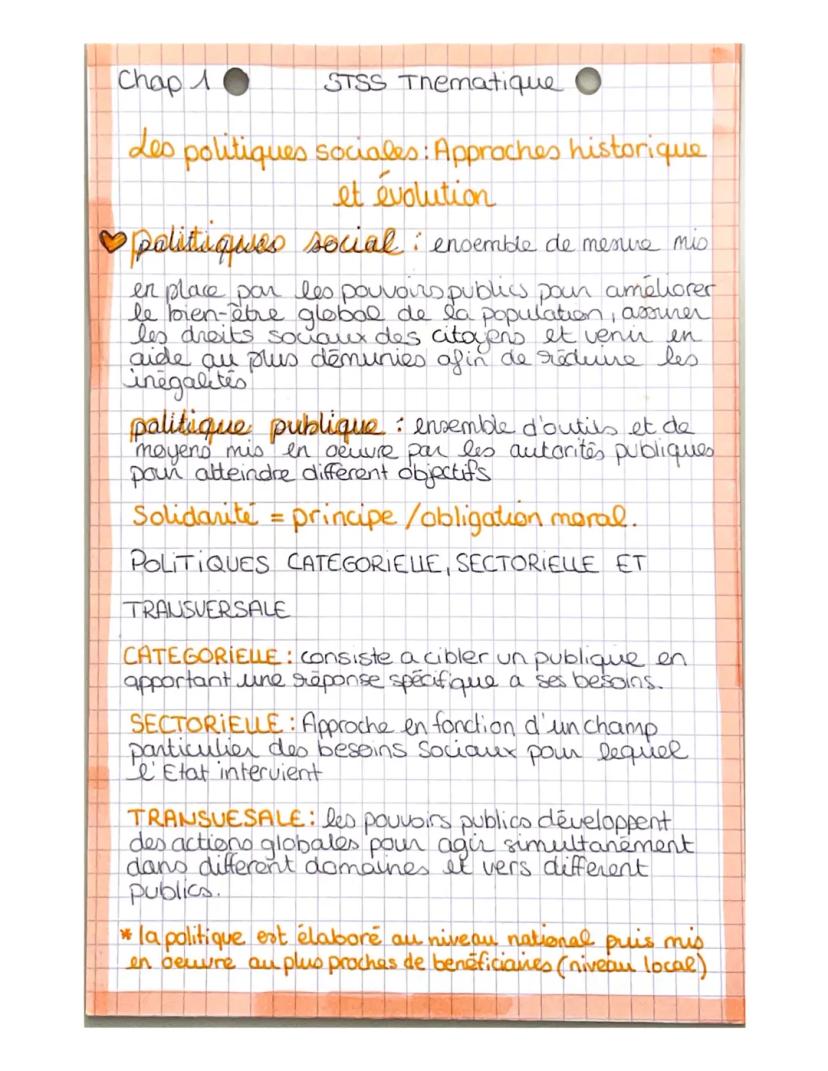 Chap 1 STSS Thematique
Les politiques sociales : Approches historique
et évolution
politiques social : ensemble de mesure mis
en place par les pouvoirs publics pour améliorer
le bien-être global de la population, assurer
les droits sociaux des citoyens et venir en
aide au plus démunies afin de réduire les
inégalités
politique publique : ensemble d'outils et de
moyens mis en oeuvre par les autorités publiques
pour atteindre différent objectifs
Solidarité = principe / obligation moral.
POLITIQUES CATEGORIELLE, SECTORIELLE ET
TRANSVERSALE
CATEGORIELLE : consiste a cibler un publique en
apportant une réponse spécifique a ses besoins.
SECTORIELLE : Approche en fonction d'un champ
particulier des besoins sociaux pour lequel
l'Etat intervient
TRANSVESALE : les pouvoirs publics développent
des actions globales pour agir simultanément
dans différent domaines et vers différent
publics.
* la politique est élaboré au niveau national puis mis
en oeuvre au plus proches de bénéficiaires (niveau local)